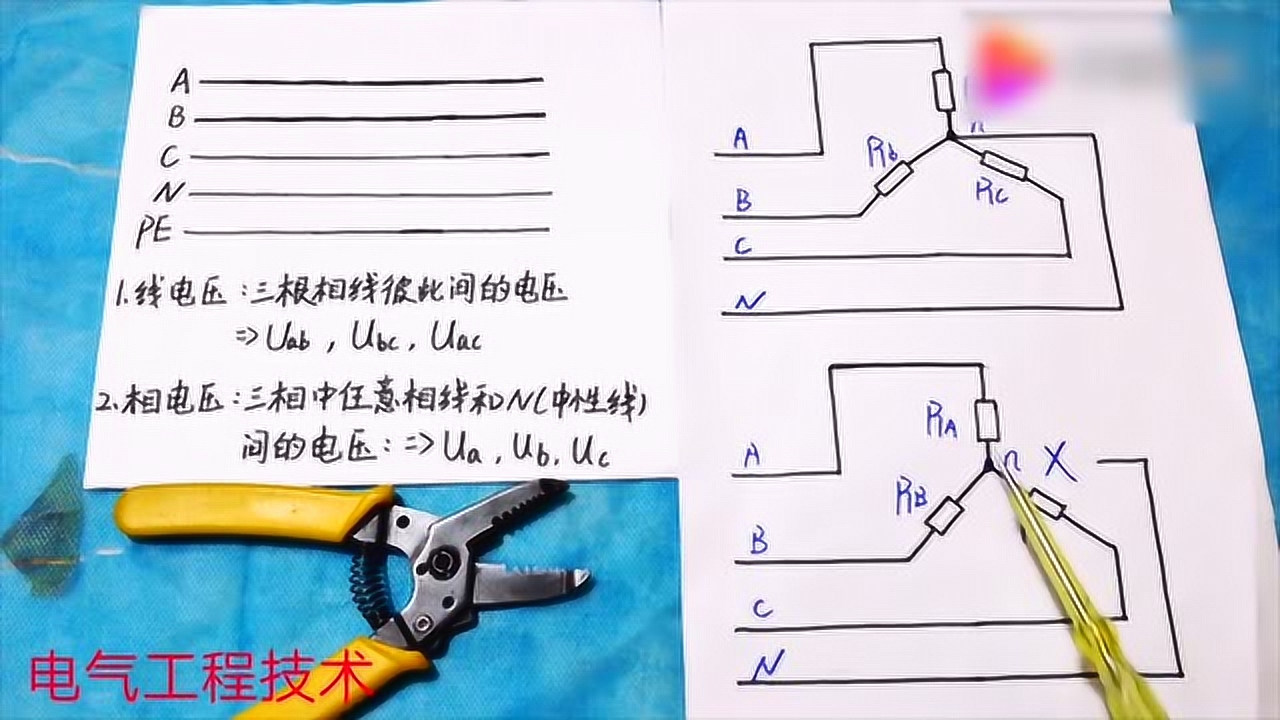 A
B
C
N
PE
1.线电压:三根相线彼此间的电压
=> Uab, Ubc, Uac
2.相电压:三相中任意相线和N(中性线)
间的电压:=> Ua, Ub, Uc
n
A
Rb
RC
B
C
N
RA
A
n X
RB
B
C
N
电气工程技术